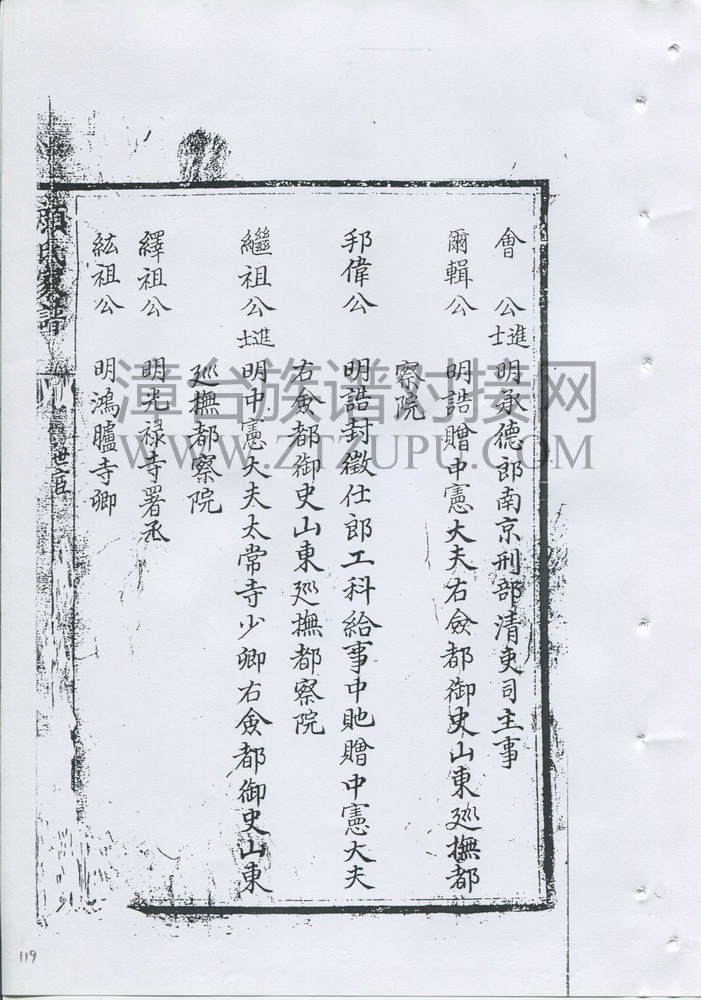 會　公 進士 明承德郎南京刑部清吏司主事
爾輯公 明誥贈中憲大夫右僉都御史山東廵撫都
察院
邦偉公 明誥封徵仕郎工科給事中貤贈中憲大夫
右僉都御史山東廵撫都察院
繼祖公 進士 明中憲大夫太常寺少卿右僉都御史山東
廵撫都察院
繹祖公 明光禄寺署丞
紘祖公 明鴻臚寺卿
顏氏家譜
世宦
漳台族谱对接网
WWW.ZTZUPU.COM
119